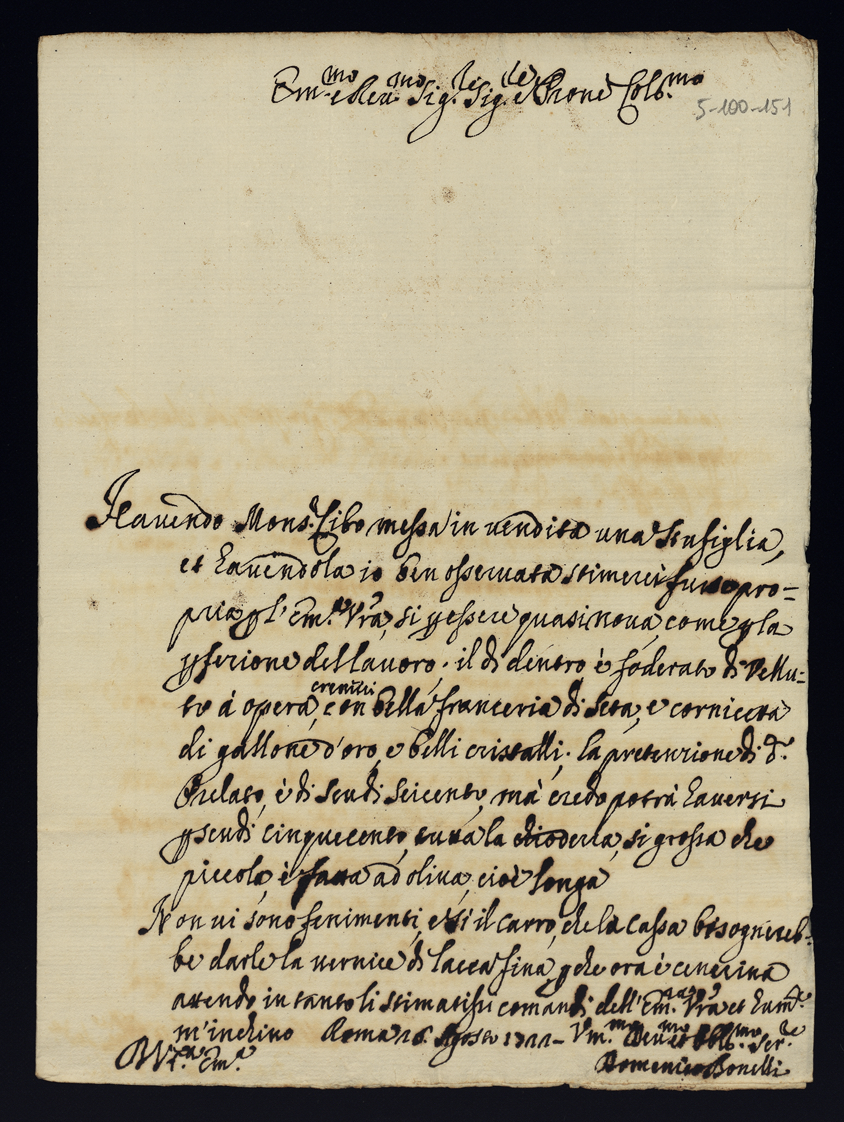 Em.mo e Rev.mo Sig.re Sig.re e Prone Colb.mo
5-100-151
Havendo Mons.r Cibo messa in vendita una Stufiglia,
et havendola io ben osservata stimerei fusse pro-
pria p l'Em.za Vra, si p essere quasi nova, come p la
pferione del lavoro. il di dentro è foderato di Vellu-
to à opera cremisi, con bella franceria di seta, e cornicetta
di gallone d'oro, e belli cristalli. la pretenzione di d.o
Prelato, è di scudi seicento, mà credo potrà haversi
p scudi cinquecento, tutta la chioderia, si grossa che
piccola, è fatta ad oliva, cioè longa
Non vi sono fenimenti, e si il carro, che la cassa bisognereb-
be darle la vernice di lacca fina, p che ora è cenerina
attendo in tanto li stimatis.i comandi dell'Em.za Vra et hum.te
m'inchino Roma 26 Agosto 1722 - Vm.mo Dev.mo et Obb.mo Ser.re
Domenico Bonelli
Em.a